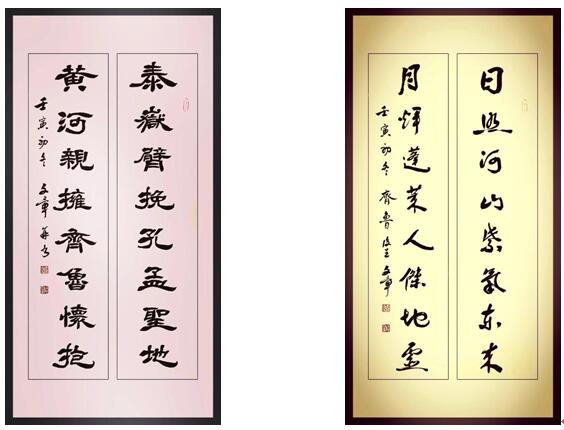 泰嶽臂挽孔孟聖地
黄河親擁齊魯懷抱
壬寅初冬 文章并书
日照河山紫氣东来
月煇蓬莱人傑地靈
壬寅初冬 齊魯後生文章